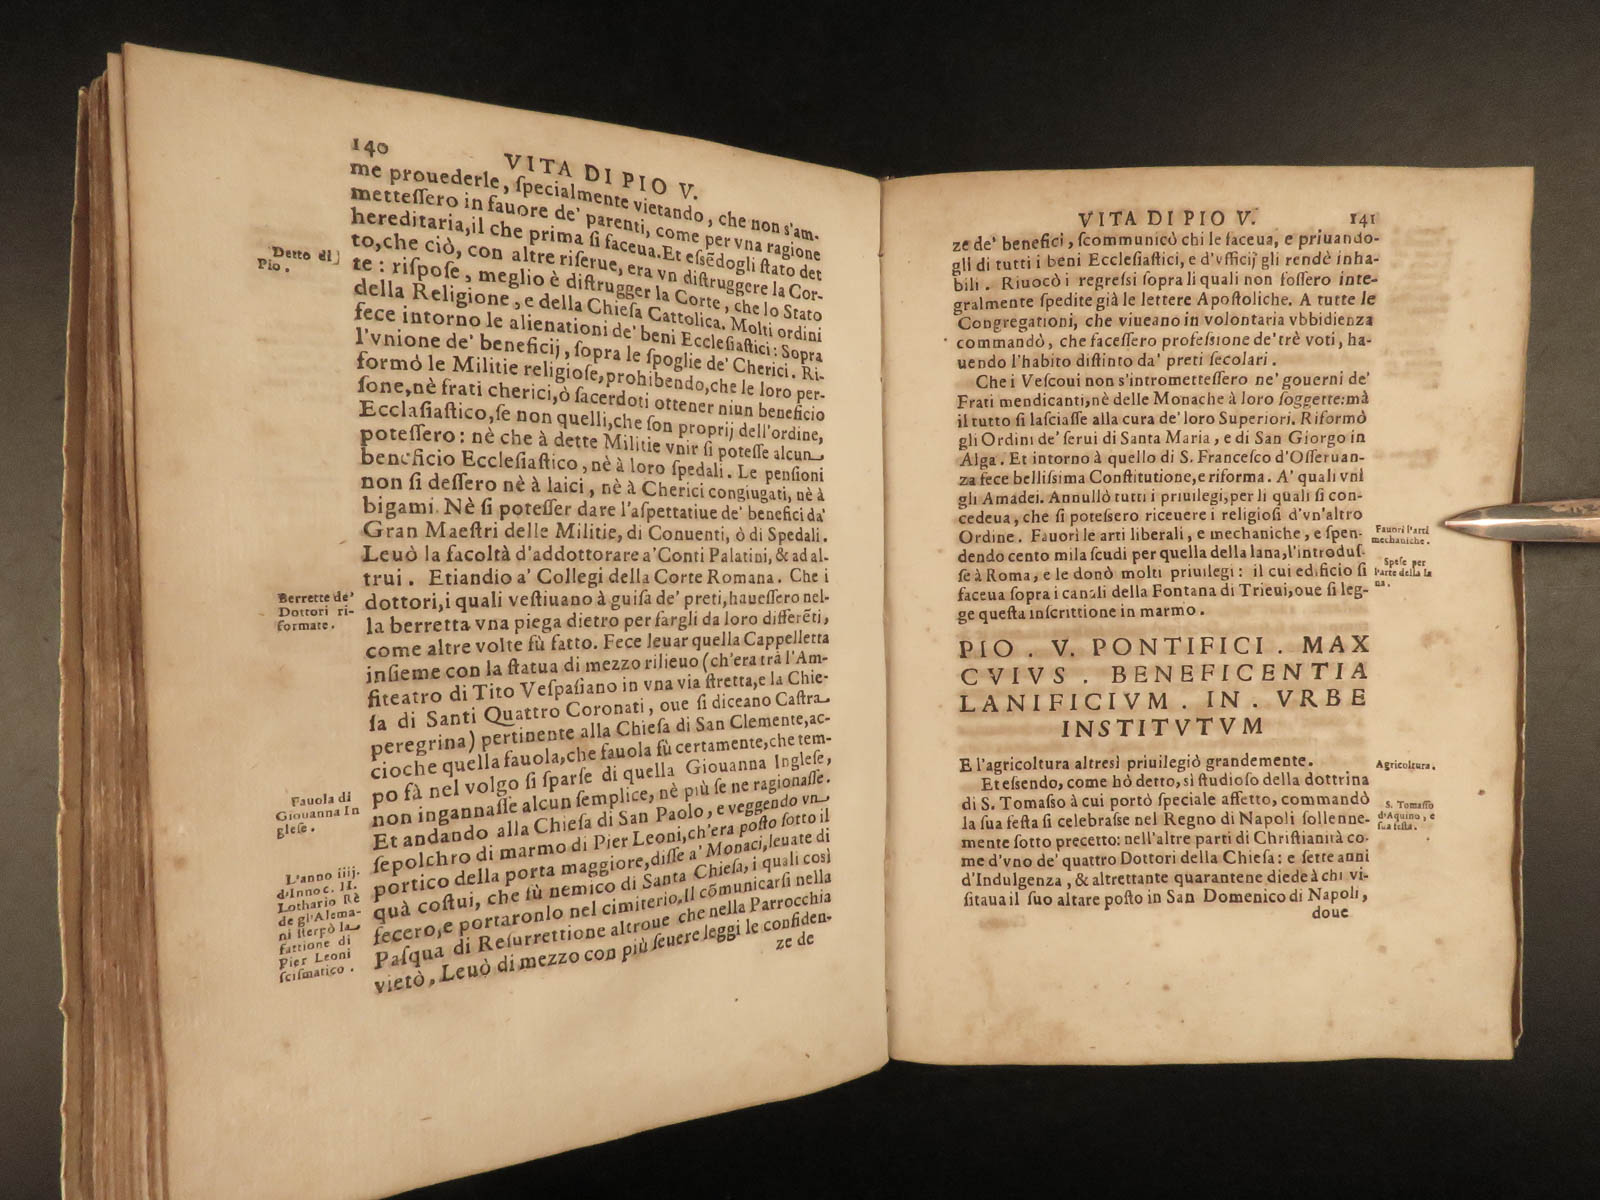 140
VITA DI PIO V.
me prouederle, ſpecialmente vietando, che non s'am-
metteſſero in fauore de' parenti, come per vna ragione
hereditaria, il che prima ſi faceua. Et eſsẽdogli ſtato det
Detto di
Pio.
to, che ciò, con altre riſerue, era vn diſtruggere la Cor-
te : riſpoſe, meglio è diſtrugger la Corte, che lo Stato
della Religione, e della Chieſa Cattolica. Molti ordini
fece intorno le alienationi de' beni Eccleſiaſtici: Sopra
l'vnione de' beneficij, ſopra le ſpoglie de' Cherici. Ri-
formò le Militie religioſe, prohibendo, che le loro per-
ſone, nè frati cherici, ò ſacerdoti ottener niun beneficio
Ecclaſiaſtico, ſe non quelli, che ſon proprij dell'ordine,
poteſſero: nè che à dette Militie vnir ſi poteſſe alcun
beneficio Eccleſiaſtico, nè à loro ſpedali. Le penſioni
non ſi deſſero nè à laici, nè à Cherici congiugati, nè à
bigami. Nè ſi poteſſer dare l'aſpettatiue de' benefici da'
Gran Maeſtri delle Militie, di Conuenti, ò di Spedali.
Leuò la facoltà d'addottorare a' Conti Palatini, & ad al-
trui. Etiandio a' Collegi della Corte Romana. Che i
Berrette de'
Dottori ri-
formate.
dottori, i quali veſtiuano à guiſa de' preti, haueſſero nel-
la berretta vna piega dietro per fargli da loro differẽti,
come altre volte fù fatto. Fece leuar quella Cappelletta
inſieme con la ſtatua di mezzo rilieuo (ch'era trà l'Am-
fiteatro di Tito Veſpaſiano in vna via ſtretta, e la Chie-
ſa di Santi Quattro Coronati, oue ſi diceano Caſtra
peregrina) pertinente alla Chieſa di San Clemente, ac-
cioche quella fauola, che fauola fù certamente, che tem-
po fà nel volgo ſi sparſe di quella Giouanna Ingleſe,
Fauola di
Giouanna In
gleſe.
non ingannaſſe alcun ſemplice, nè più ſe ne ragionaſſe.
Et andando alla Chieſa di San Paolo, e veggendo vn
ſepolchro di marmo di Pier Leoni, ch'era poſto ſotto il
portico della porta maggiore, diſſe a' Monaci, leuate di
L'anno iiij.
d'Innoc. II.
Lothario Rè
de gl'Alema-
ni ſterpò la
fattione di
Pier Leoni
ſciſmatico.
quà coſtui, che fù nemico di Santa Chieſa, i quali così
fecero, e portaronlo nel cimiterio. Il cõmunicarſi nella
Paſqua di Reſurrettione altroue che nella Parrocchia
vietò, Leuò di mezzo con più ſeuere leggi le confiden-
ze de
VITA DI PIO V.
141
ze de' benefici, ſcommunicò chi le faceua, e priuando-
gli di tutti i beni Eccleſiaſtici, e d'vfficij gli rendè inha-
bili. Riuocò i regreſſi ſopra li quali non foſſero inte-
gralmente ſpedite già le lettere Apoſtoliche. A tutte le
Congregationi, che viueano in volontaria vbbidienza
commandò, che faceſſero profeſsione de' trè voti, ha-
uendo l'habito diſtinto da' preti ſecolari.
Che i Veſcoui non s'intrometteſſero ne' gouerni de'
Frati mendicanti, nè delle Monache à loro ſoggette: mà
il tutto ſi laſciaſſe alla cura de' loro Superiori. Riformò
gli Ordini de' ſerui di Santa Maria, e di San Giorgo in
Alga. Et intorno à quello di S. Franceſco d'Oſſeruan-
za fece belliſsima Conſtitutione, e riforma. A' quali vnì
gli Amadei. Annullò tutti i priuilegi, per li quali ſi con-
cedeua, che ſi poteſsero riceuere i religioſi d'vn'altro
Ordine. Fauorì le arti liberali, e mechaniche, e ſpen-
Fauorì l'arti
mechaniche.
dendo cento mila ſcudi per quella della lana, l'introduſ-
ſe à Roma, e le donò molti priuilegi: il cui edificio ſi
Spese per
l'arte della la
na.
faceua ſopra i canali della Fontana di Trieui, oue ſi leg-
ge queſta inſcrittione in marmo.
PIO . V. PONTIFICI . MAX
CVIVS . BENEFICENTIA
LANIFICIVM . IN . VRBE
INSTITVTVM
E l'agricoltura altresì priuilegiò grandemente.
Agricoltura.
Et eſsendo, come hò detto, sì ſtudioſo della dottrina
di S. Tomaſſo à cui portò ſpeciale affetto, commandò
S. Tomaſſo
d'Aquino, e
ſua feſta.
la ſua feſta ſi celebraſse nel Regno di Napoli ſollenne-
mente ſotto precetto: nell'altre parti di Chriſtianità co-
me d'vno de' quattro Dottori della Chieſa: e ſette anni
d'Indulgenza, & altrettante quarantene diede à chi vi-
ſitaua il ſuo altare poſto in San Domenico di Napoli,
doue